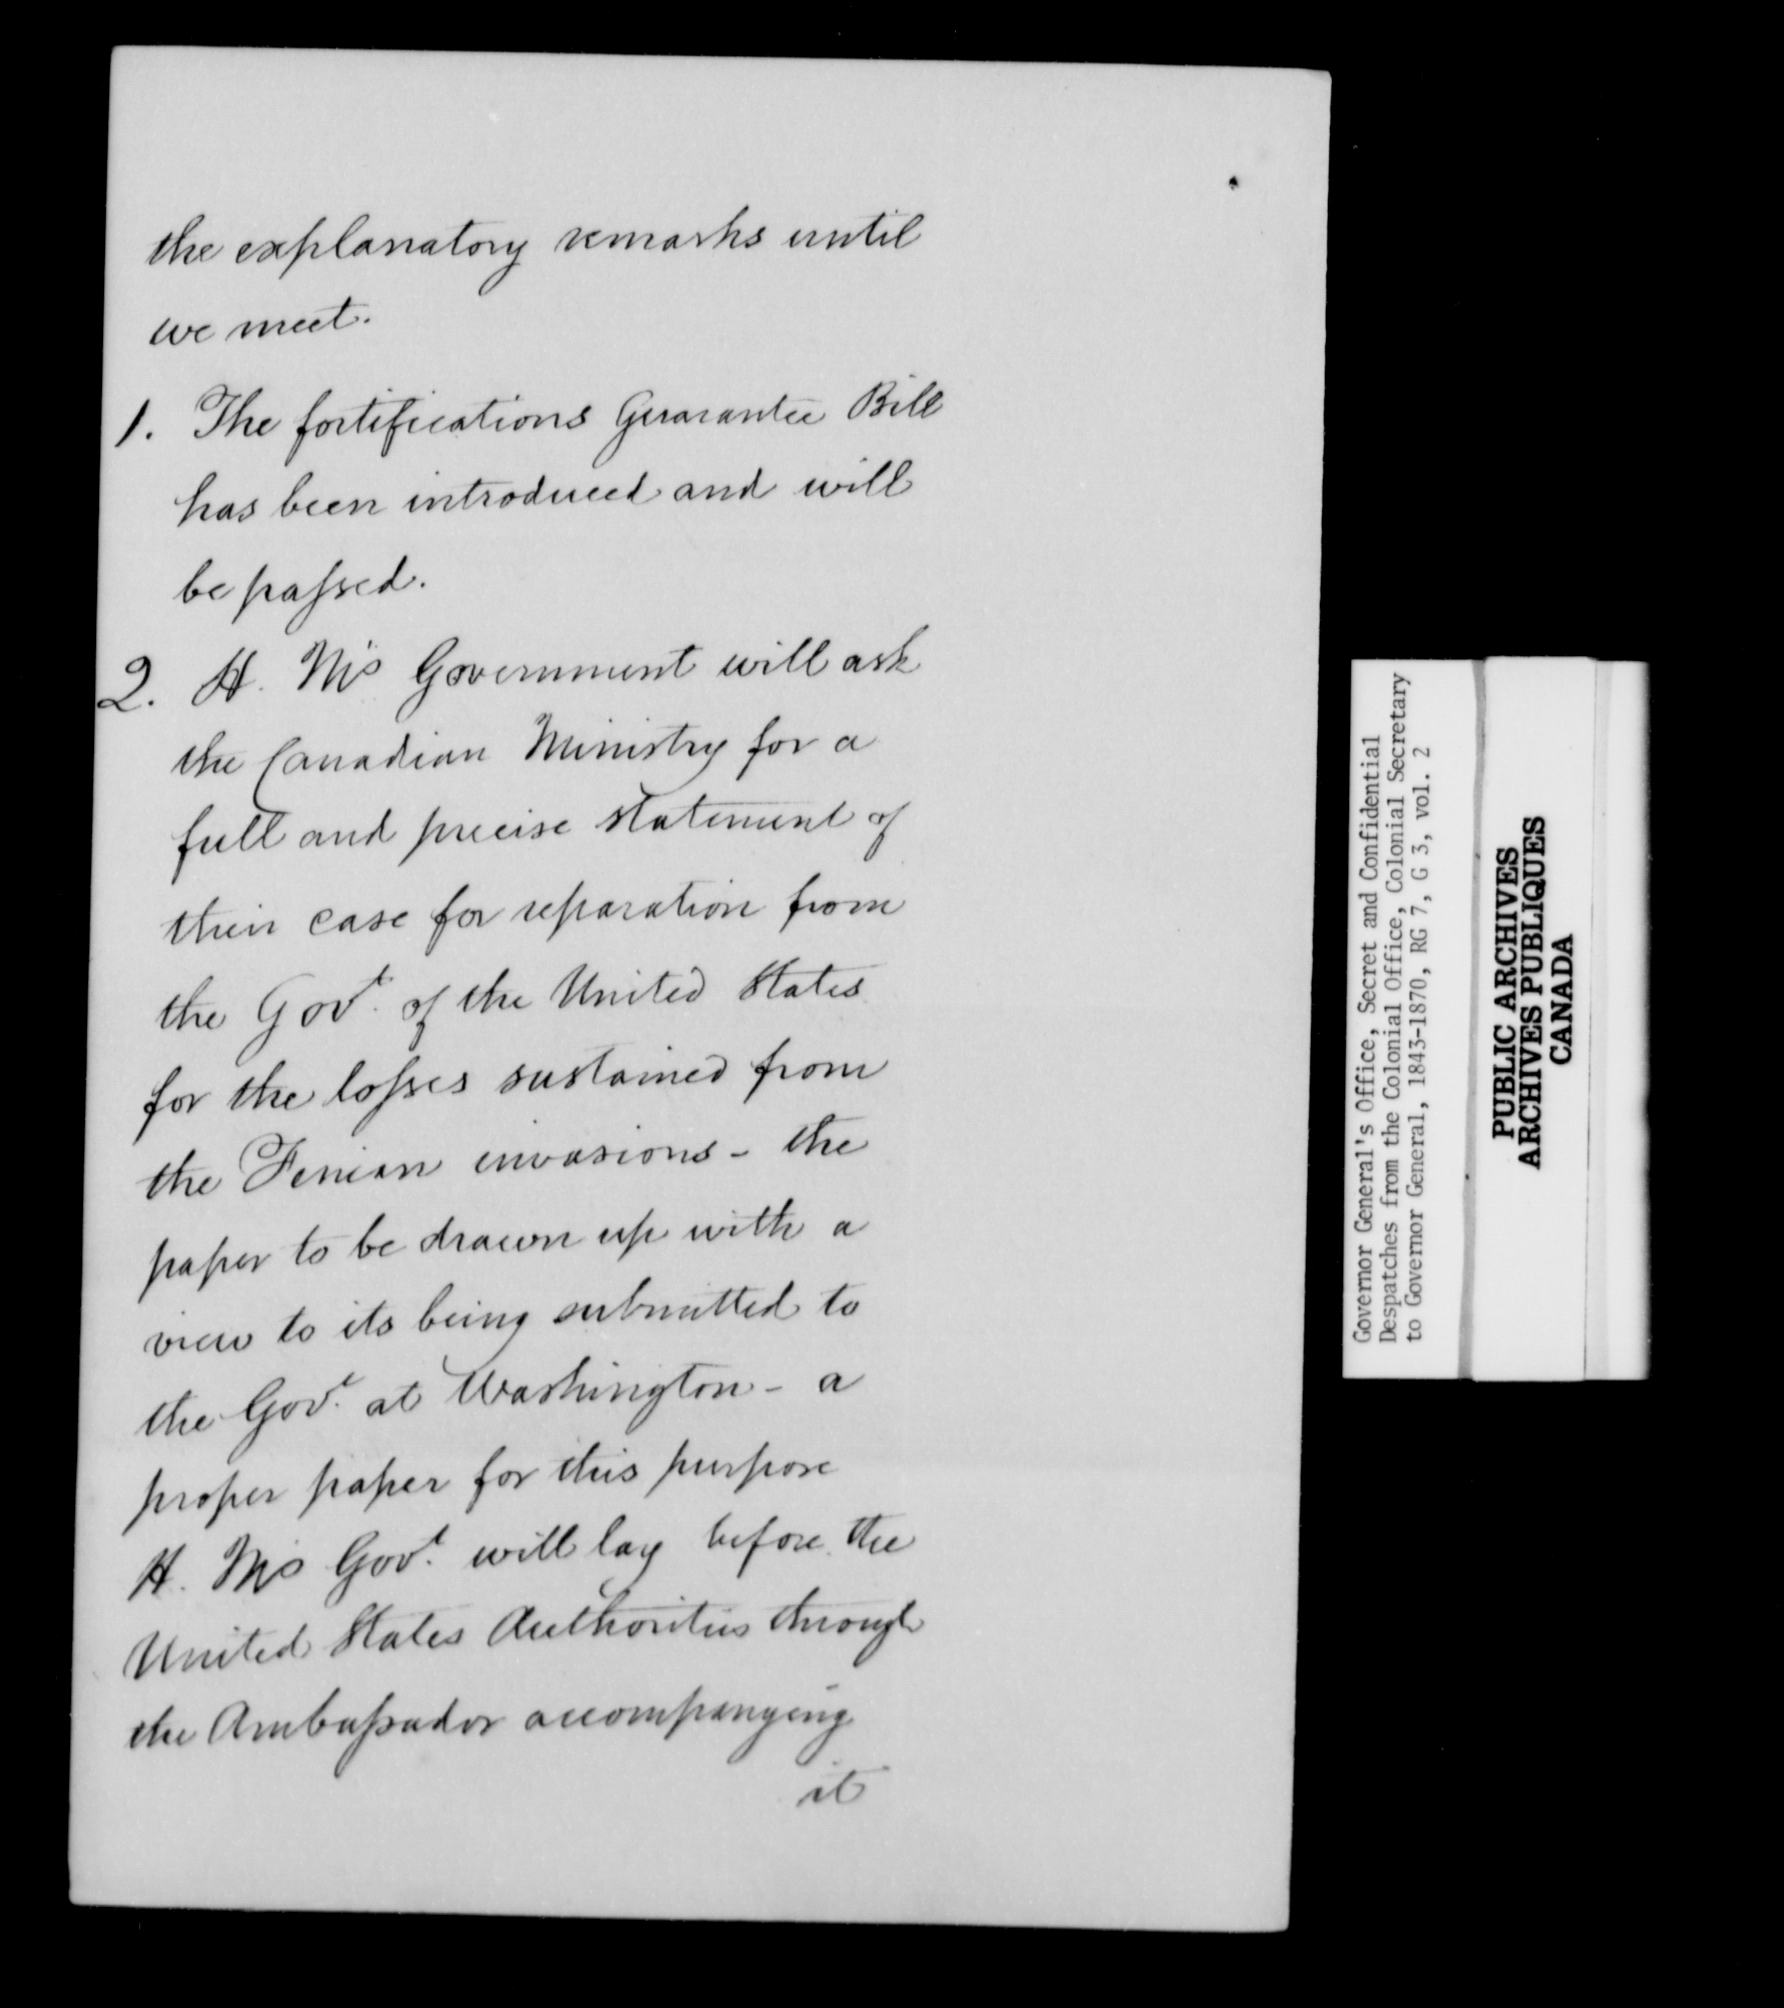 the explanatory remarks until
we meet.
1. The fortifications Guarantee Bill
has been introduced and will
be paſsed.
2. H. M's Government will ask
the Canadian Ministry for a
full and precise statement of
their case for reparation from
the Govt. of the United States
for the loſses sustained from
the Fenian invasions - the
paper to be drawn up with a
view to its being submitted to
the Govt. at Washington - a
proper paper for this purpose
H. M's Govt. will lay before the
United States Authorities through
the Ambaſsador accompanying
it
Governor General's Office, Secret and Confidential
Despatches from the Colonial Office, Colonial Secretary
to Governor General, 1843-1870, RG 7, G 3, vol. 2
PUBLIC ARCHIVES
ARCHIVES PUBLIQUES
CANADA